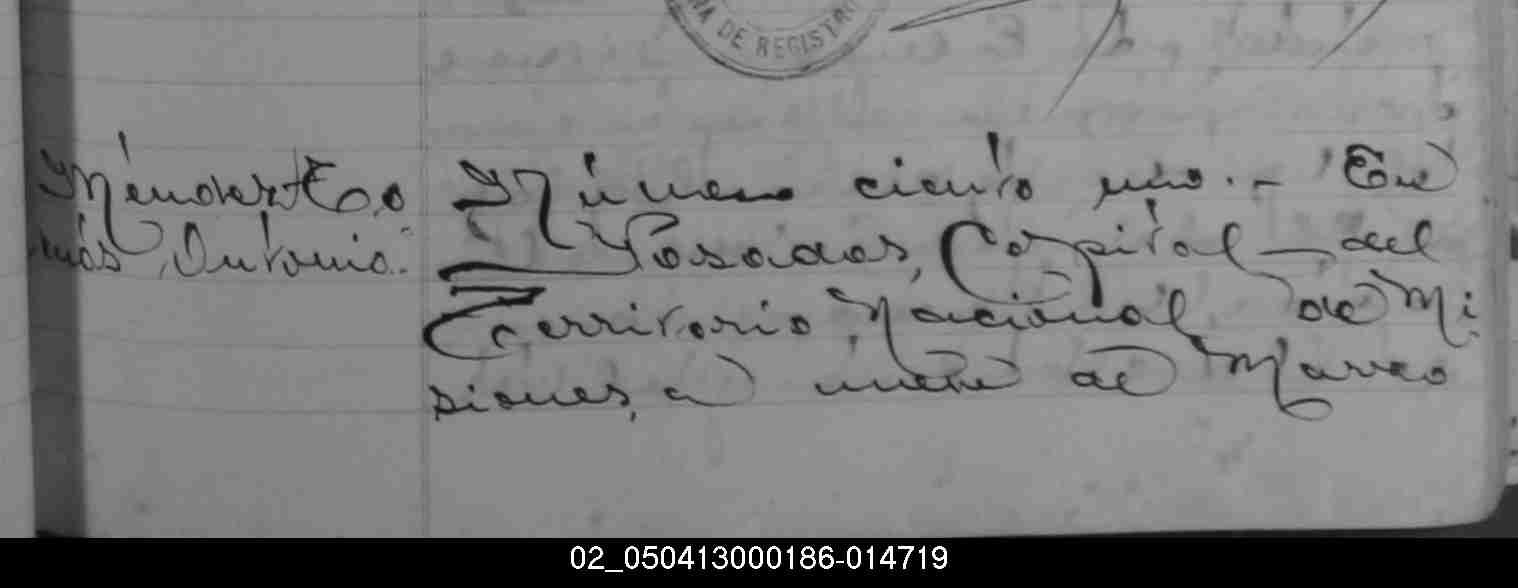 NA DE REGISTRO
Méndez, To
más Antonio.
Número ciento uno. - En
Posadas, Capital del
Territorio Nacional de Mi
siones, a nueve de Marzo
02_050413000186-014719